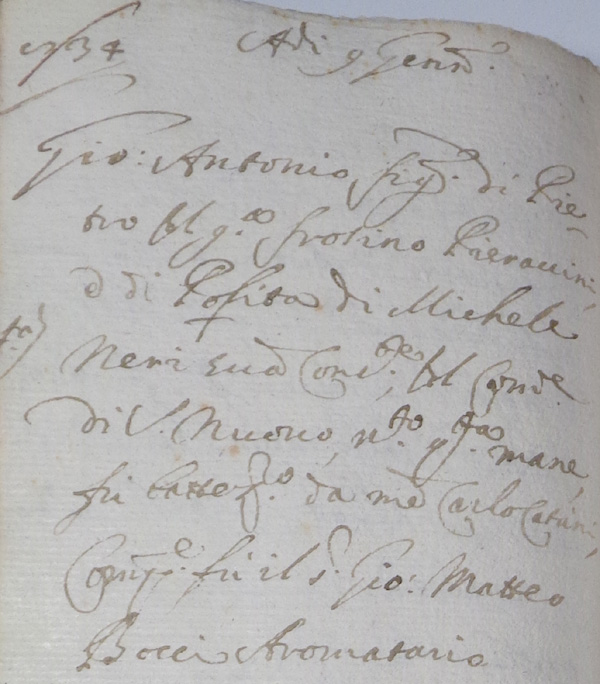 1734 Adi 9 Genn.o
Gio: Antonio, fig.o di Pie-
tro del q.m Frosino Pieraccini,
e di Rosita di Michele
Neri sua Cons.te, del Com.e
di S. Nuovo, n.to q.ta mane,
fù battez.o da me Carlo Catani,
Comp.e fù il S. Gio: Matteo
Bocci Aromatario